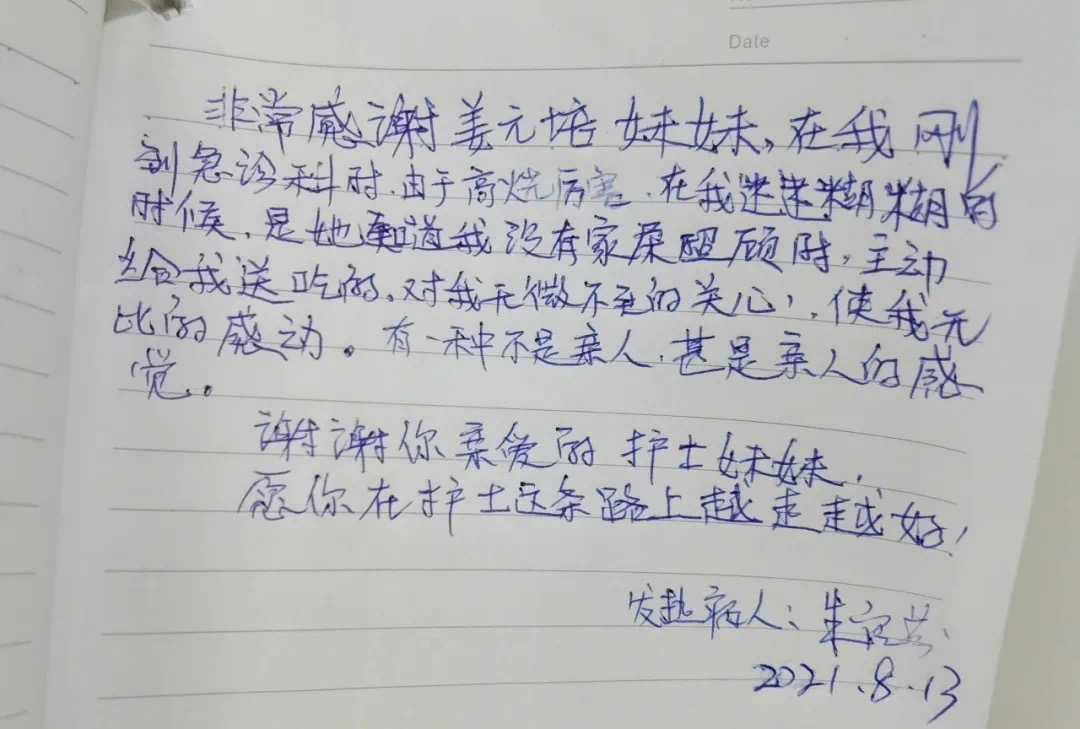 Date
非常感谢姜元培妹妹，在我刚
到急诊科时，由于高烧厉害，在我迷迷糊糊的
时候，是她知道我没有家属照顾时，主动
给我送吃的，对我无微不至的关心，使我无
比的感动。有一种不是亲人，甚是亲人的感
觉。
谢谢你亲爱的护士妹妹，
愿你在护士这条路上越走越好！
发热病人：朱
2021.8.13